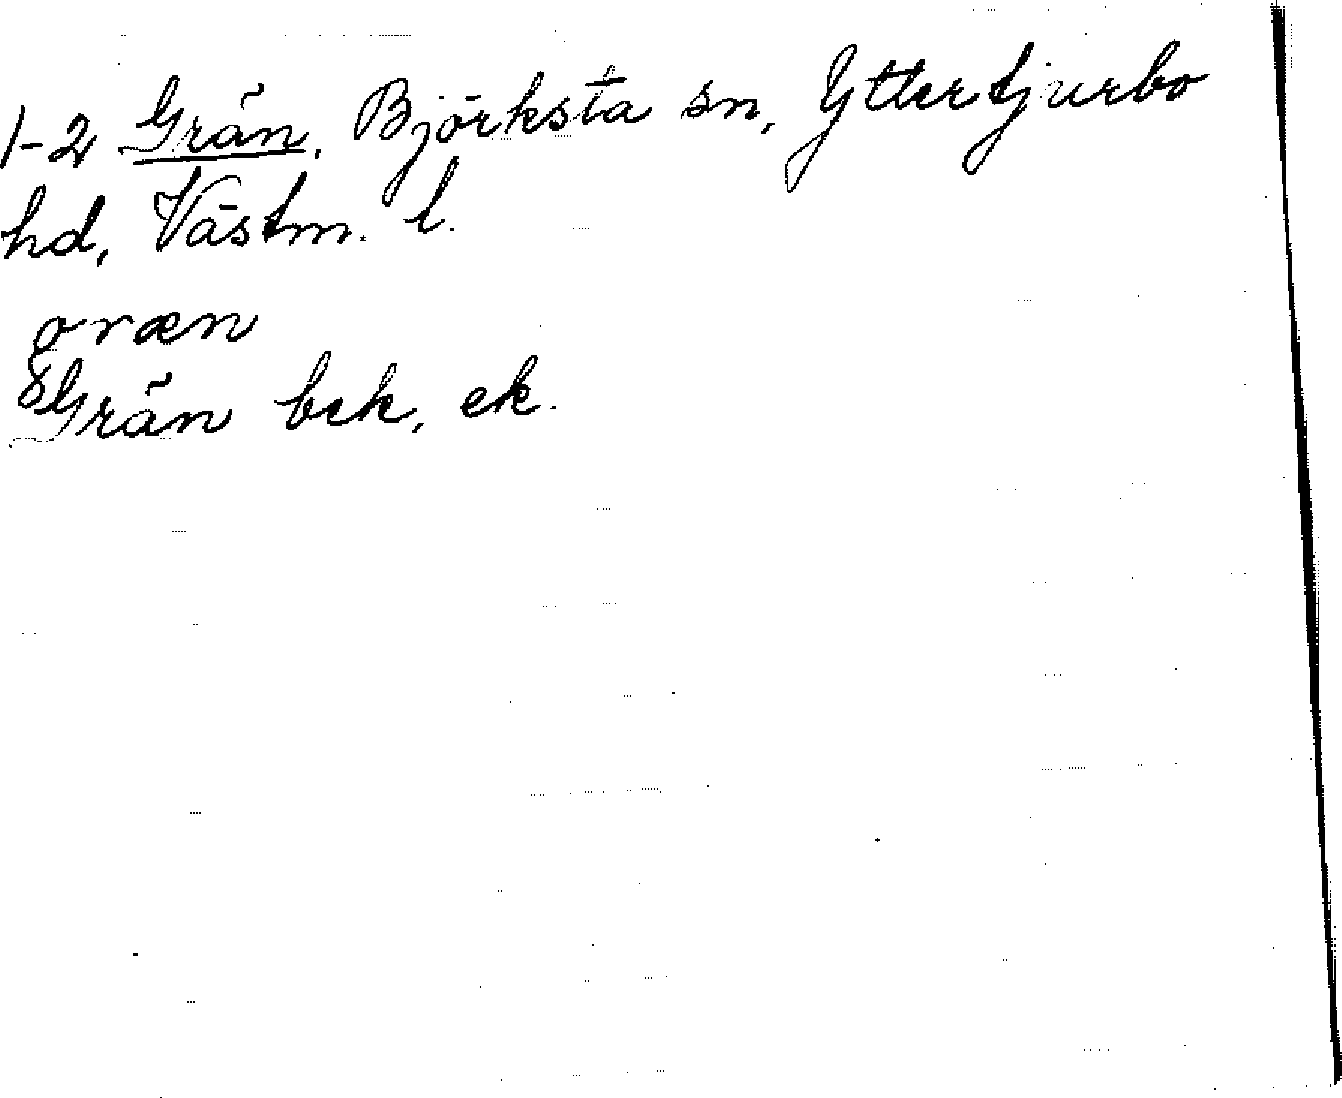 1-2 Grän, Björksta sn, Yttertjurbo
hd, Västm. l.
græn
Grän bek, ek.